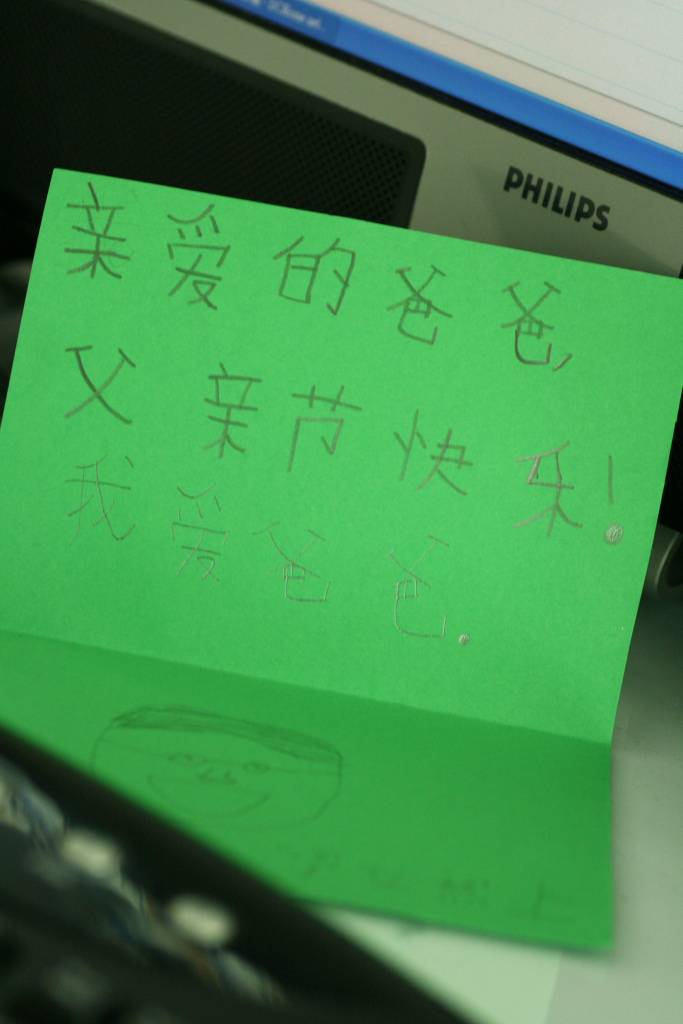 PHILIPS
亲爱的爸爸,
父亲节快乐!
我爱爸爸.
上